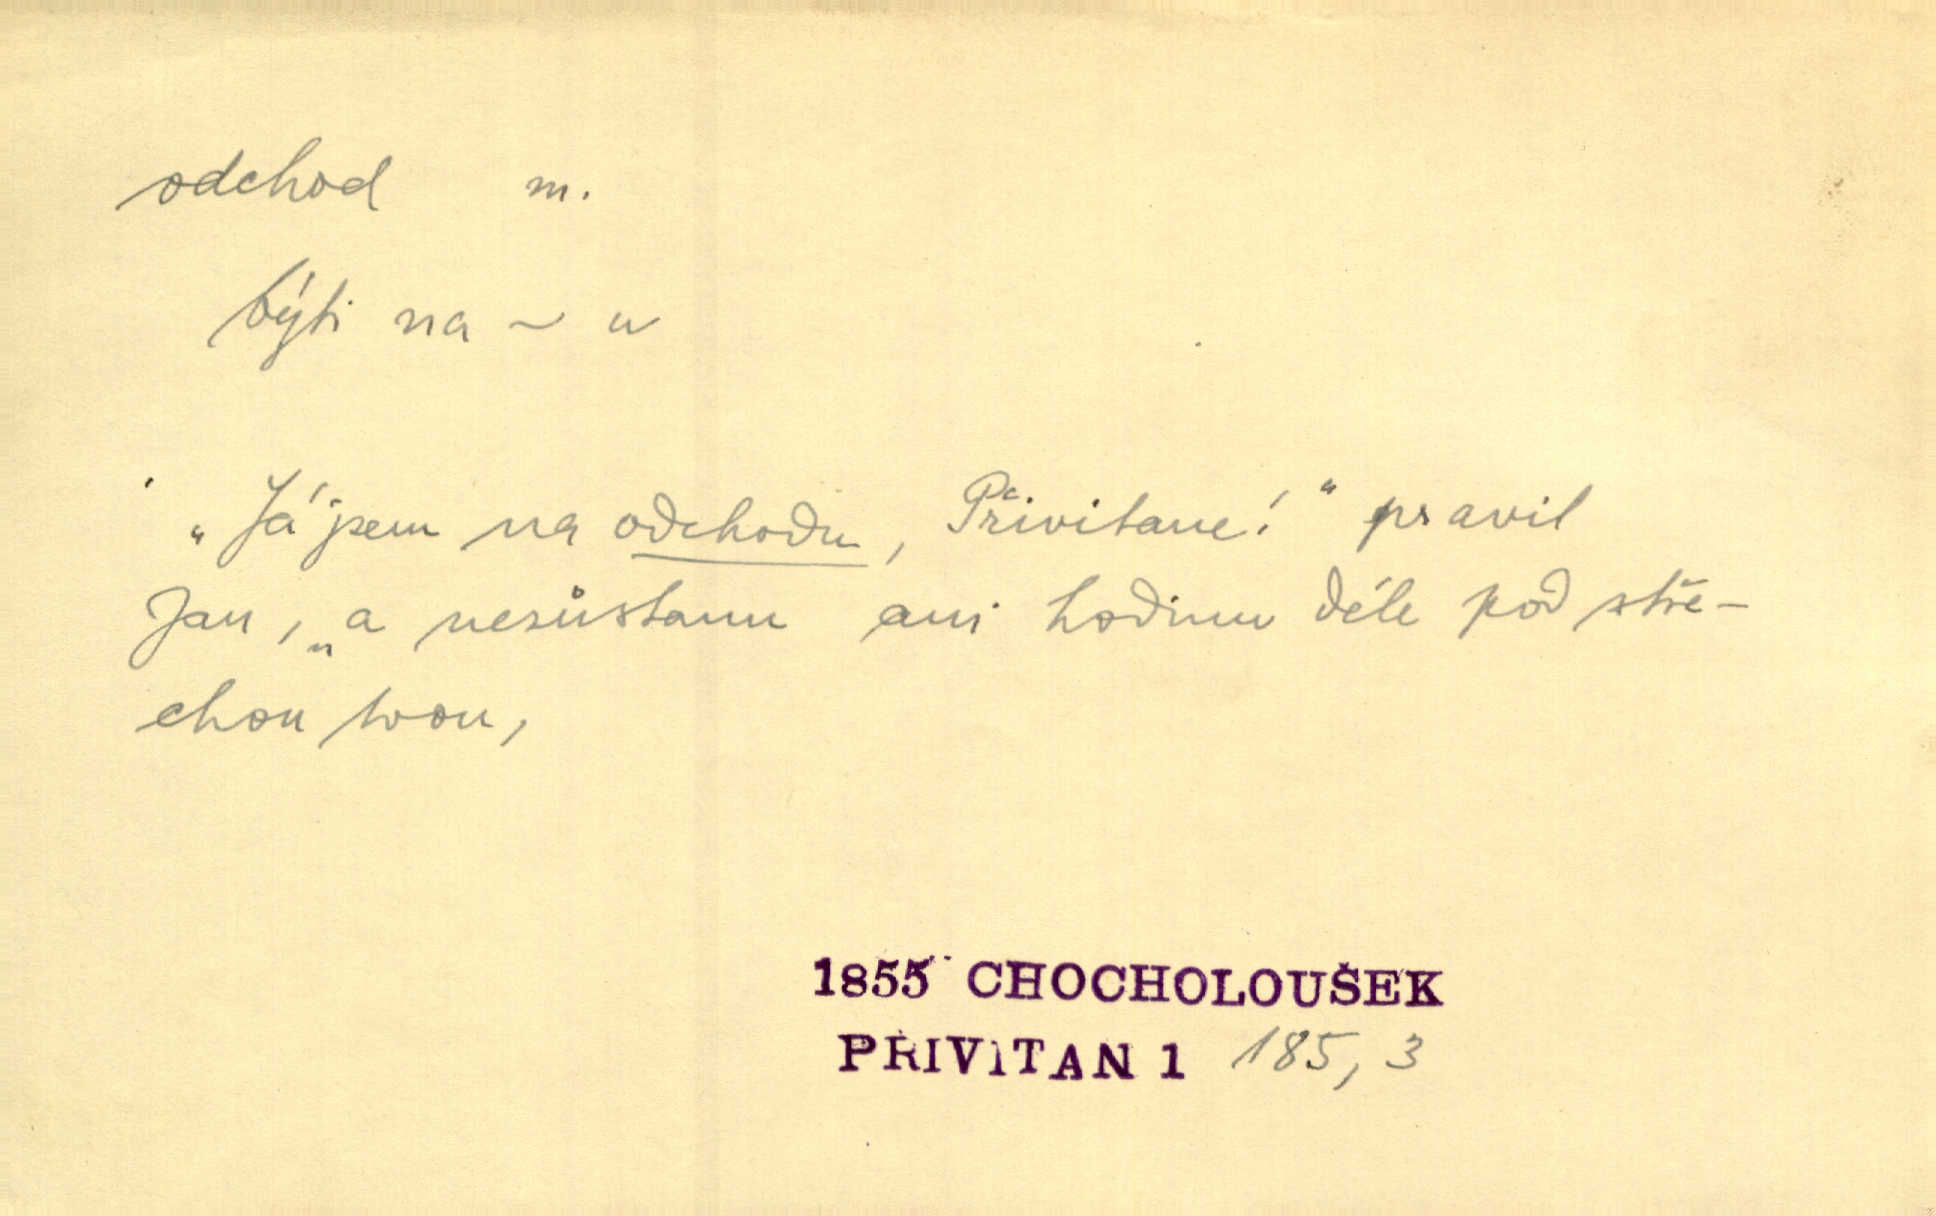 odchod m.
býti na ~ u
„Já jsem na odchodu, Přivitane!“ pravil
Jan, „a nezůstanu ani hodinu déle pod stře-
chou tvou,
1855 CHOCHOLOUŠEK
PŘIVITAN 1 185, 3